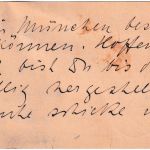 München bes
können. Hoffen
bist Du bis d
llig hergestell
schicke